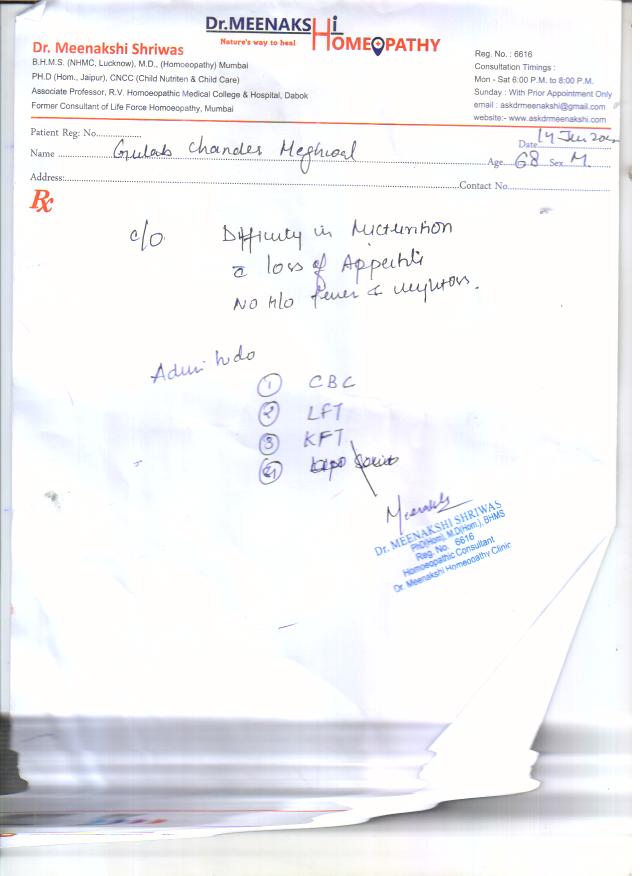 Dr.MEENAKSHi
Nature's way to heal
HOMEOPATHY
Dr. Meenakshi Shriwas
B.H.M.S. (NHMC, Lucknow), M.D., (Homoeopathy) Mumbai
PH.D (Hom., Jaipur), CNCC (Child Nutriten & Child Care)
Associate Professor, R.V. Homoeopathic Medical College & Hospital, Dabok
Former Consultant of Life Force Homoeopathy, Mumbai
Reg. No. : 6616
Consultation Timings :
Mon - Sat 6:00 P.M. to 8:00 P.M.
Sunday : With Prior Appointment Only
email : askdrmeenakshi@gmail.com
website:- www.askdrmeenakshi.com
Patient Reg: No..............
Date 14 Jun
Name Gulab Chander Meghwal Age 68 Sex M.
Address: Contact No.
Rx
c/o Difficulty in Micturition
c loss of Appetite
NO H/o fever &
Adv: to do
1 CBC
2 LFT
3 KFT
4
Meenakshi
Dr. MEENAKSHI SHRIWAS
PhD(Hom), M.D(Hom.), BHMS
Reg. No. 6616
Homoeopathic Consultant
Dr. Meenakshi Homeopathy Clinic